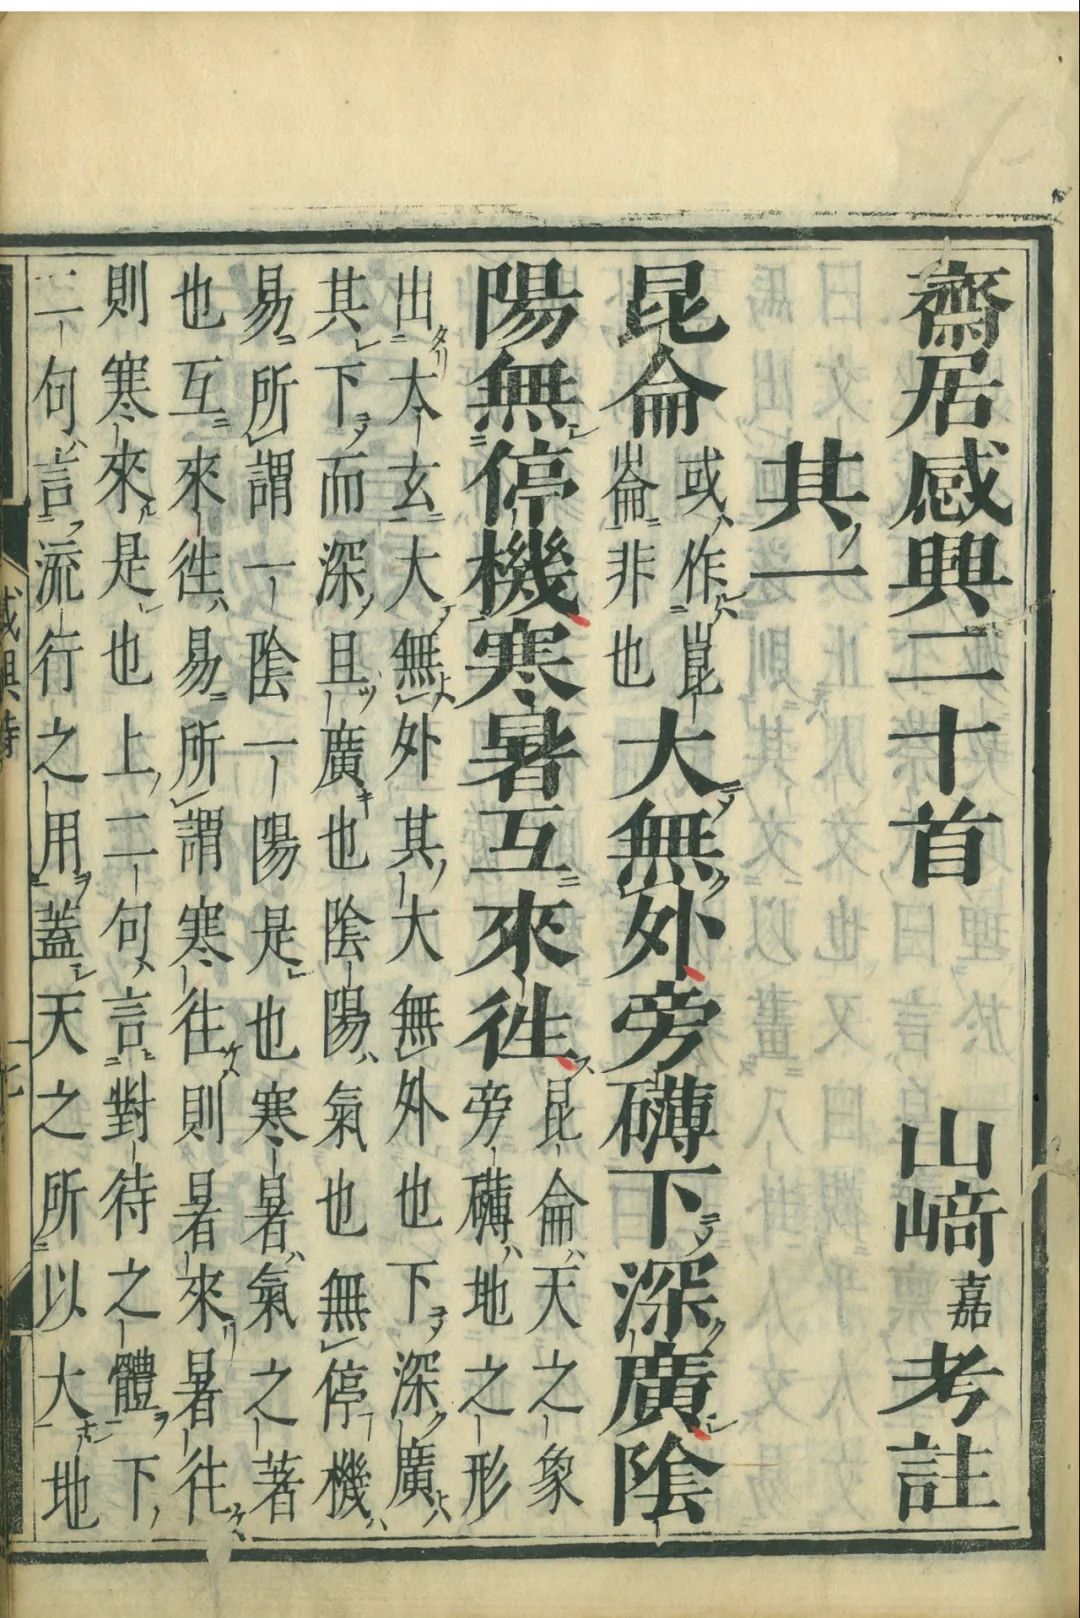 齋居感興二十首　山﨑嘉考註
其一
昆侖或作崑崙非也大無外旁礴下深廣陰
陽無停機寒暑互來徃昆侖天之象旁礴地之形
出太玄大無外其大無外也下深廣
其下而深且廣也陰陽氣也無停機
易所謂一陰一陽是也寒暑氣之著
也互來徃易所謂寒徃則暑來暑徃
則寒來是也上二句言對待之體下
二句言流行之用蓋天之所以大地
感興詩